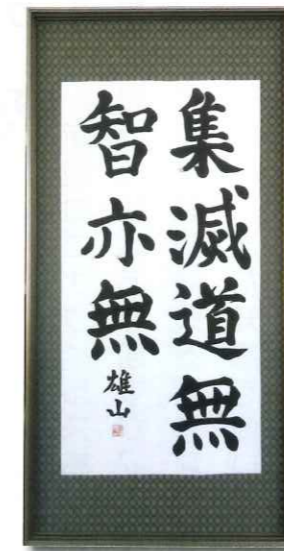 集滅道無
智亦無
雄山